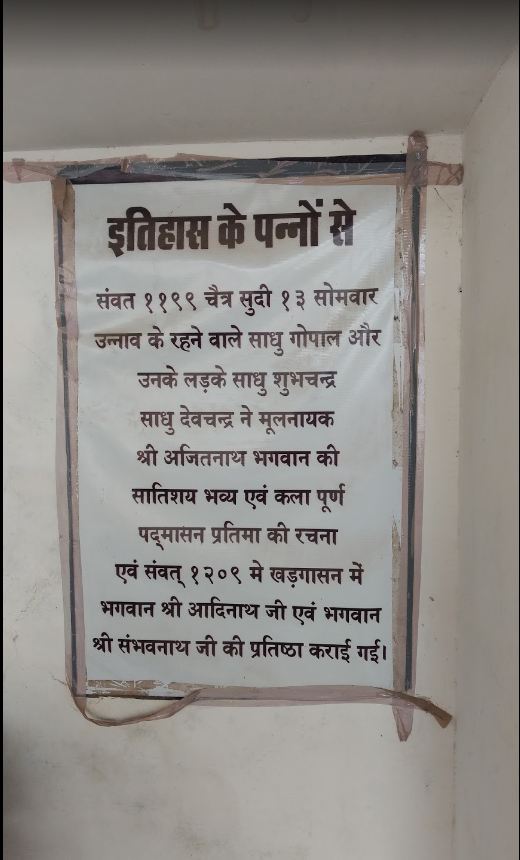 इतिहास के पन्नों से
संवत ११९९ चैत्र सुदी १३ सोमवार
उन्नाव के रहने वाले साधु गोपाल और
उनके लड़के साधु शुभचन्द्र
साधु देवचन्द्र ने मूलनायक
श्री अजितनाथ भगवान की
सातिशय भव्य एवं कला पूर्ण
पद्मासन प्रतिमा की रचना
एवं संवत् १२०९ मे खड़गासन में
भगवान श्री आदिनाथ जी एवं भगवान
श्री संभवनाथ जी की प्रतिष्ठा कराई गई।